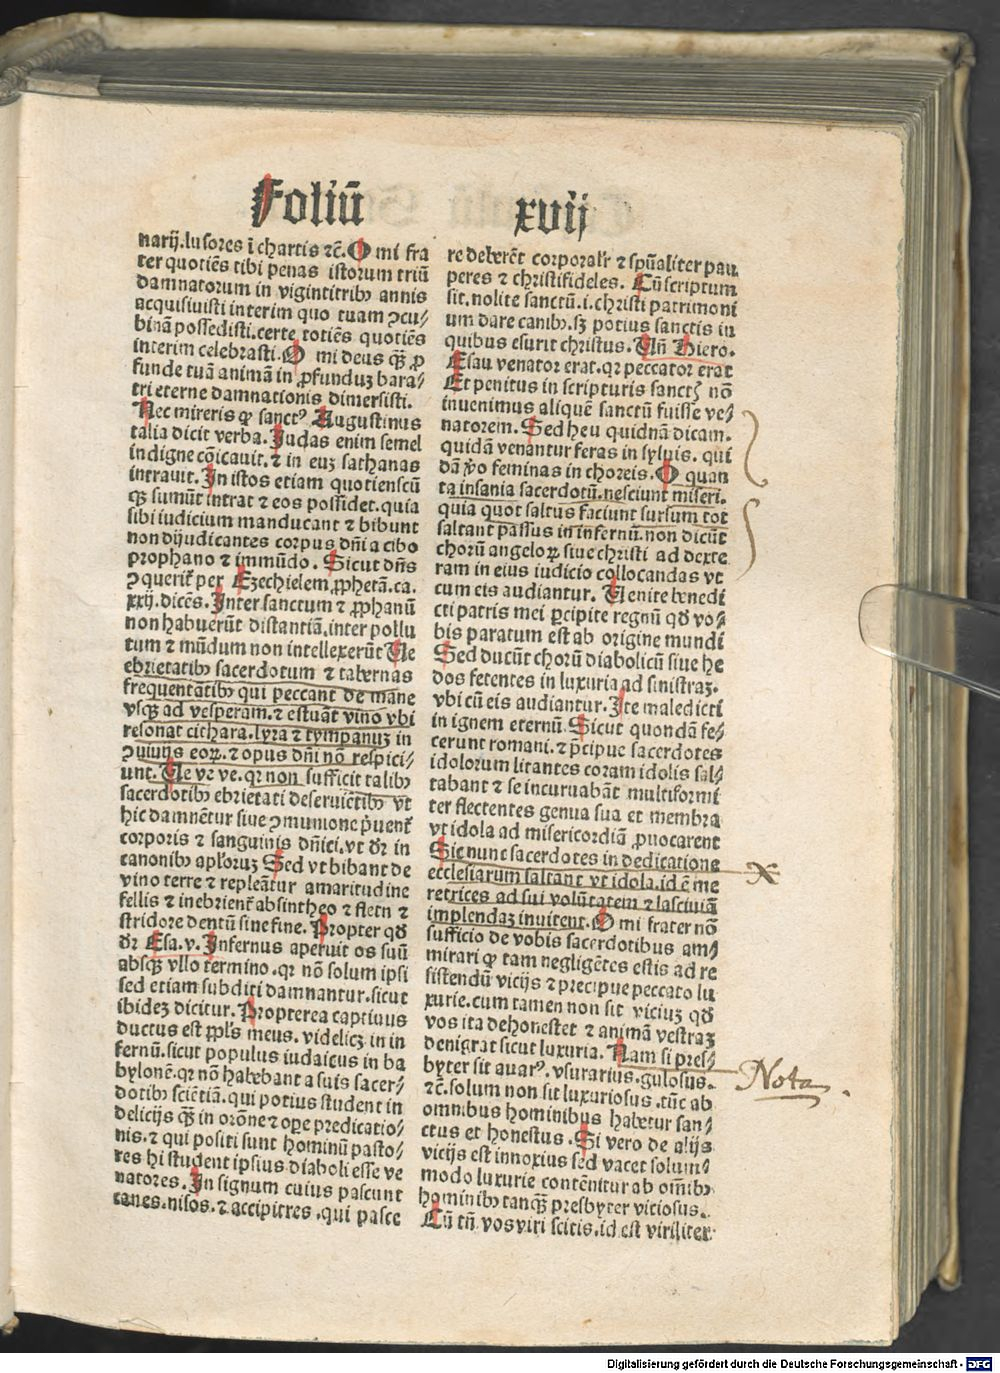 Foliū xvij
narij. lusores ī chartis ⁊c̄. O mi fra
ter quotiēs tibi penas istorum triū
damnatorum in vigintitribꝰ annis
acquisiuisti interim quo tuam ꝯcu/
binā possedisti. certe totiēs quotiēs
interim celebrasti. O mi deus qꝫ ꝓ
funde tuā animā in ꝓfunduꝫ bara/
tri eterne damnationis dimersisti.
Nec mireris ꝙ sanctꝰ Augustinus
talia dicit verba. Judas enim semel
indigne cōicauit. ⁊ in euꝫ sathanas
intrauit. In istos etiam quotienscū
qꝫ sumūt intrat ⁊ eos possidet. quia
sibi iudicium manducant ⁊ bibunt
non dijudicantes corpus dn̄i a cibo
prophano ⁊ immūdo. Sicut dn̄s
ꝯquerit̄ per Ezechielem ꝓphetā. ca.
xxij. dicēs. Inter sanctum ⁊ ꝓphanū
non habuerūt distantiā. inter pollu
tum ⁊ mūdum non intellexerūt Ue
ebrietatibꝫ sacerdotum ⁊ tabernas
frequentātibꝫ qui peccant de mane
vsqꝫ ad vesperam. ⁊ estuāt vino vbi
resonat cithara. lyra ⁊ tympanuꝫ in
ꝯuiuijs eoꝝ. ⁊ opus dn̄i nō respici/
unt. Ue ve ve. qꝛ non sufficit talibꝫ
sacerdotibꝫ ebrietati deseruiētibꝫ vt
hic damnētur siue ꝯmunione p̄uent̄
corporis ⁊ sanguinis dn̄ici. vt dr̄ in
canonibꝫ apl̄oruꝫ Sed vt bibant de
vino terre ⁊ repleātur amaritudine
fellis ⁊ inebrient̄ absintheo ⁊ fletu ⁊
stridore dentū sine fine. Propter qd̄
dr̄ Esa. v. Infernus aperuit os suū
absqꝫ vllo termino. qꝛ nō solum ipsi
sed etiam subditi damnantur. sicut
ibideꝫ dicitur. Propterea captiuus
ductus est ppl̄s meus. videlicꝫ in in
fernū. sicut populus iudaicus in ba
bylonē. qꝛ nō habebant a suis sacer/
dotibꝫ sciētiā. qui potius student in
delicijs qꝫ in orōne ⁊ oꝑe predicatio/
nis. ⁊ qui positi sunt hominū pasto/
res hi student ipsius diaboli esse ve
natores. In signum cuius pascunt
canes. nisos. ⁊ accipitres. qui pasce
re deberēt corporalr̄ ⁊ spūaliter pau
peres ⁊ christifideles. Cū scriptum
sit. nolite sanctū. i. christi patrimoni
um dare canibꝫ. sꝫ potius sanctis in
quibus esurit christus. Un̄ Hiero.
Esau venator erat. qꝛ peccator erat
Et penitus in scripturis sanctꝭ nō
inuenimus aliquē sanctū fuisse ve/
natorem. Sed heu quidnā dicam.
quidā venantur feras in syluis. qui
dā v̄o feminas in choreis. O quan
ta insania sacerdotū. nesciunt miseri.
quia quot saltus faciunt sursum tot
saltant passus in infernū. non dicūt
chorū angeloꝝ siue christi ad dexte
ram in eius iudicio collocandas vt
cum eis audiantur. Uenite benedi
cti patris mei ꝑcipite regnū qd̄ vo/
bis paratum est ab origine mundi
Sed ducūt chorū diabolicū siue he
dos fetentes in luxuria ad sinistraꝫ.
vbi cū eis audiantur. Ite maledicti
in ignem eternū. Sicut quondā fe/
cerunt romani. ⁊ p̄cipue sacerdotes
idolorum litantes coram idolis sal/
tabant ⁊ se incuruabāt multiformi
ter flectentes genua sua et membra
vt idola ad misericordiā ꝓuocarent
Sic nunc sacerdotes in dedicatione
ecclesiarum saltant vt idola. id ē me
retrices ad sui volūtatem ⁊ lasciuiā
implendaꝫ inuitent. O mi frater nō
sufficio de vobis sacerdotibus am/
mirari ꝙ tam negligētes estis ad re
sistendū vicijs ⁊ precipue peccato lu
xurie. cum tamen non sit viciuꝫ qd̄
vos ita dehonestet ⁊ animā vestraꝫ
denigrat sicut luxuria. Nam si pres/
byter sit auarꝰ. vsurarius. gulosus.
⁊c̄. solum non sit luxuriosus. tūc ab
omnibus hominibus habetur san/
ctus et honestus. Si vero de alijs
vicijs est innoxius sed vacet solum/
modo luxurie contēnitur ab om̄ibꝫ
hominibꝫ tanqꝫ presbyter viciosus.
Cū tn̄ vos viri scitis. id est viriliter
X
Nota.
Digitalisierung gefördert durch die Deutsche Forschungsgemeinschaft - DFG